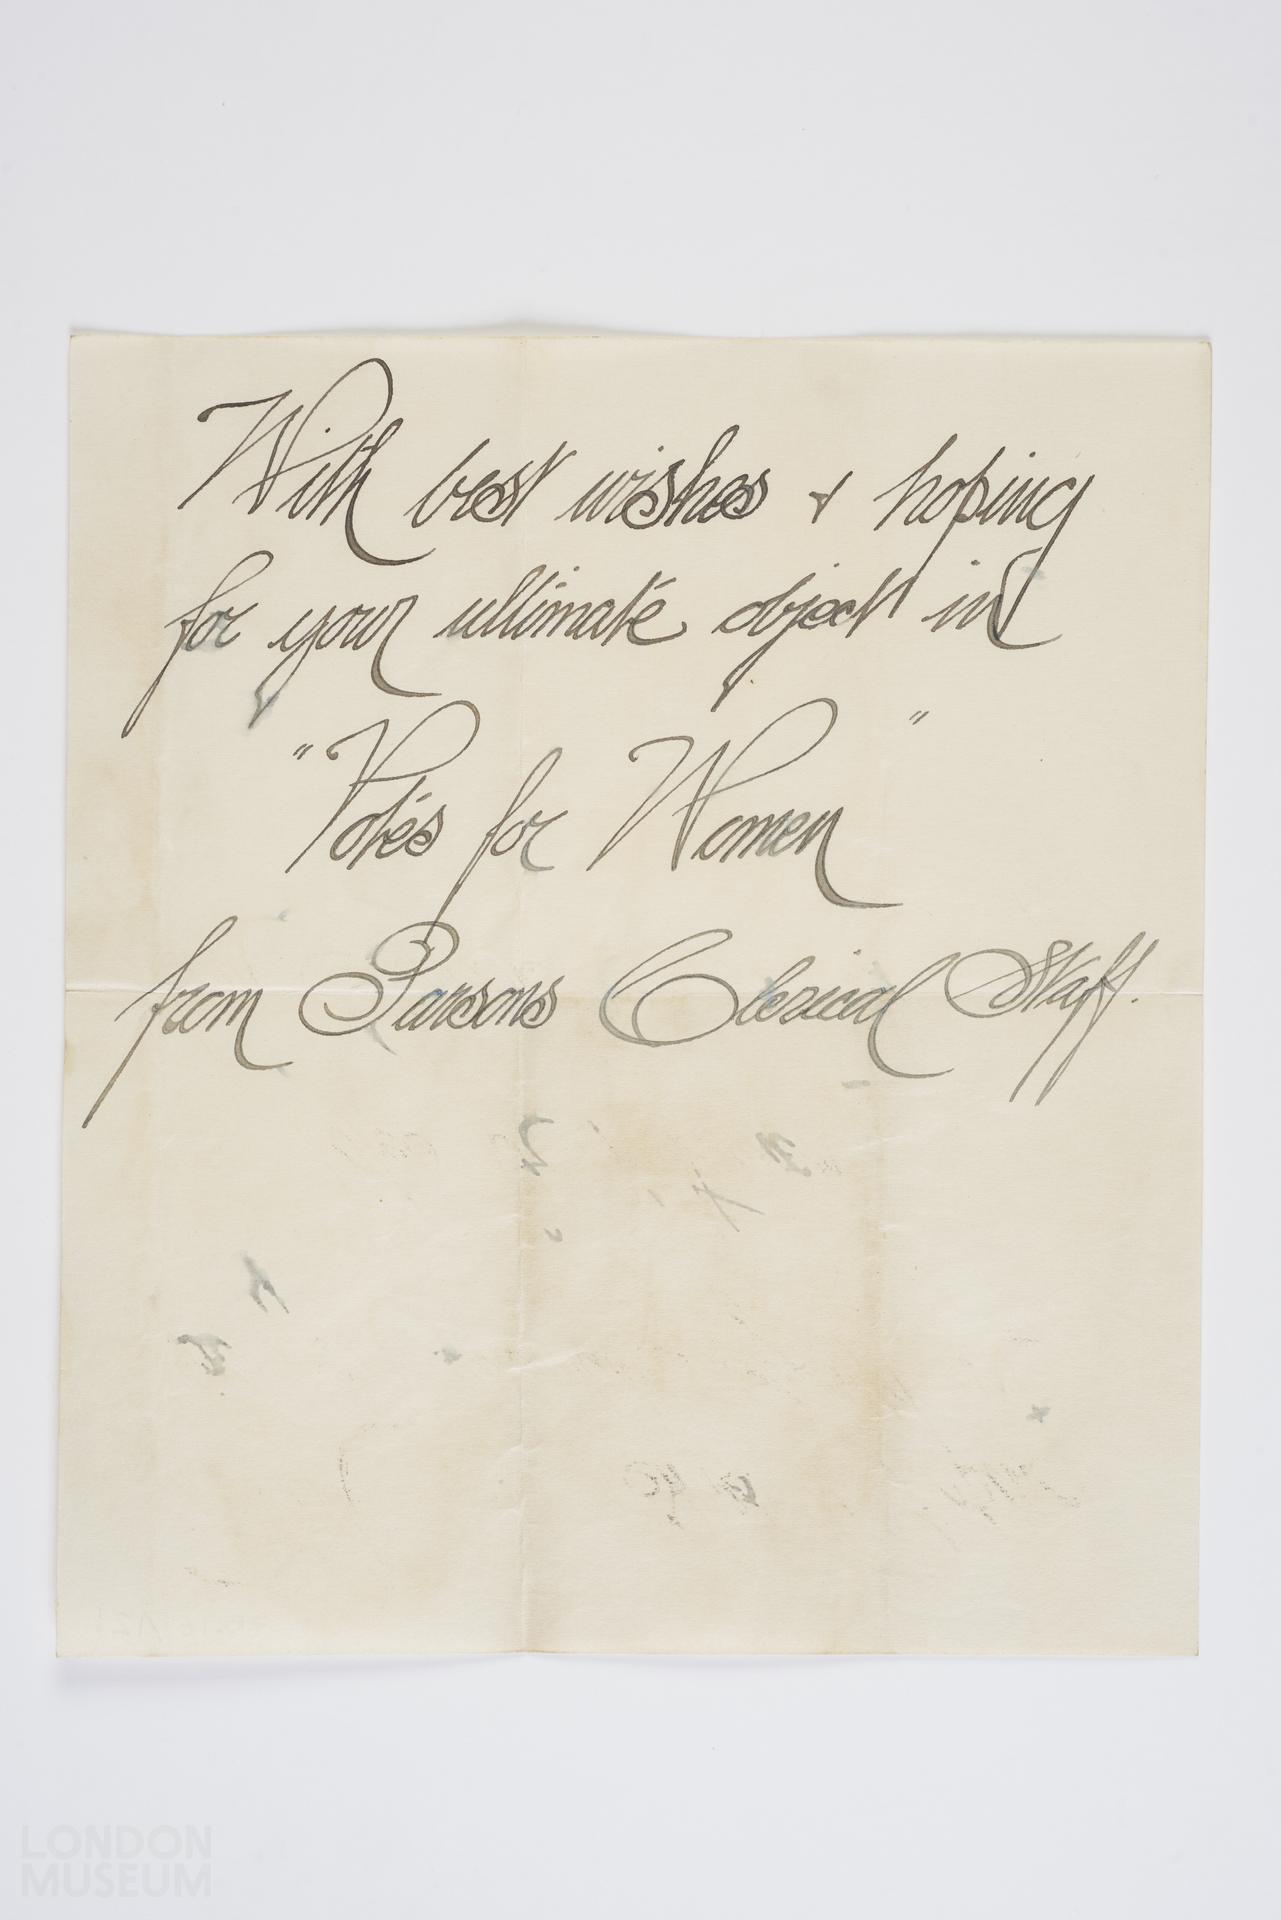 With best wishes & hoping
for your ultimate object in
"Votes for Women"
from Parsons Clerical Staff.
LONDON
MUSEUM